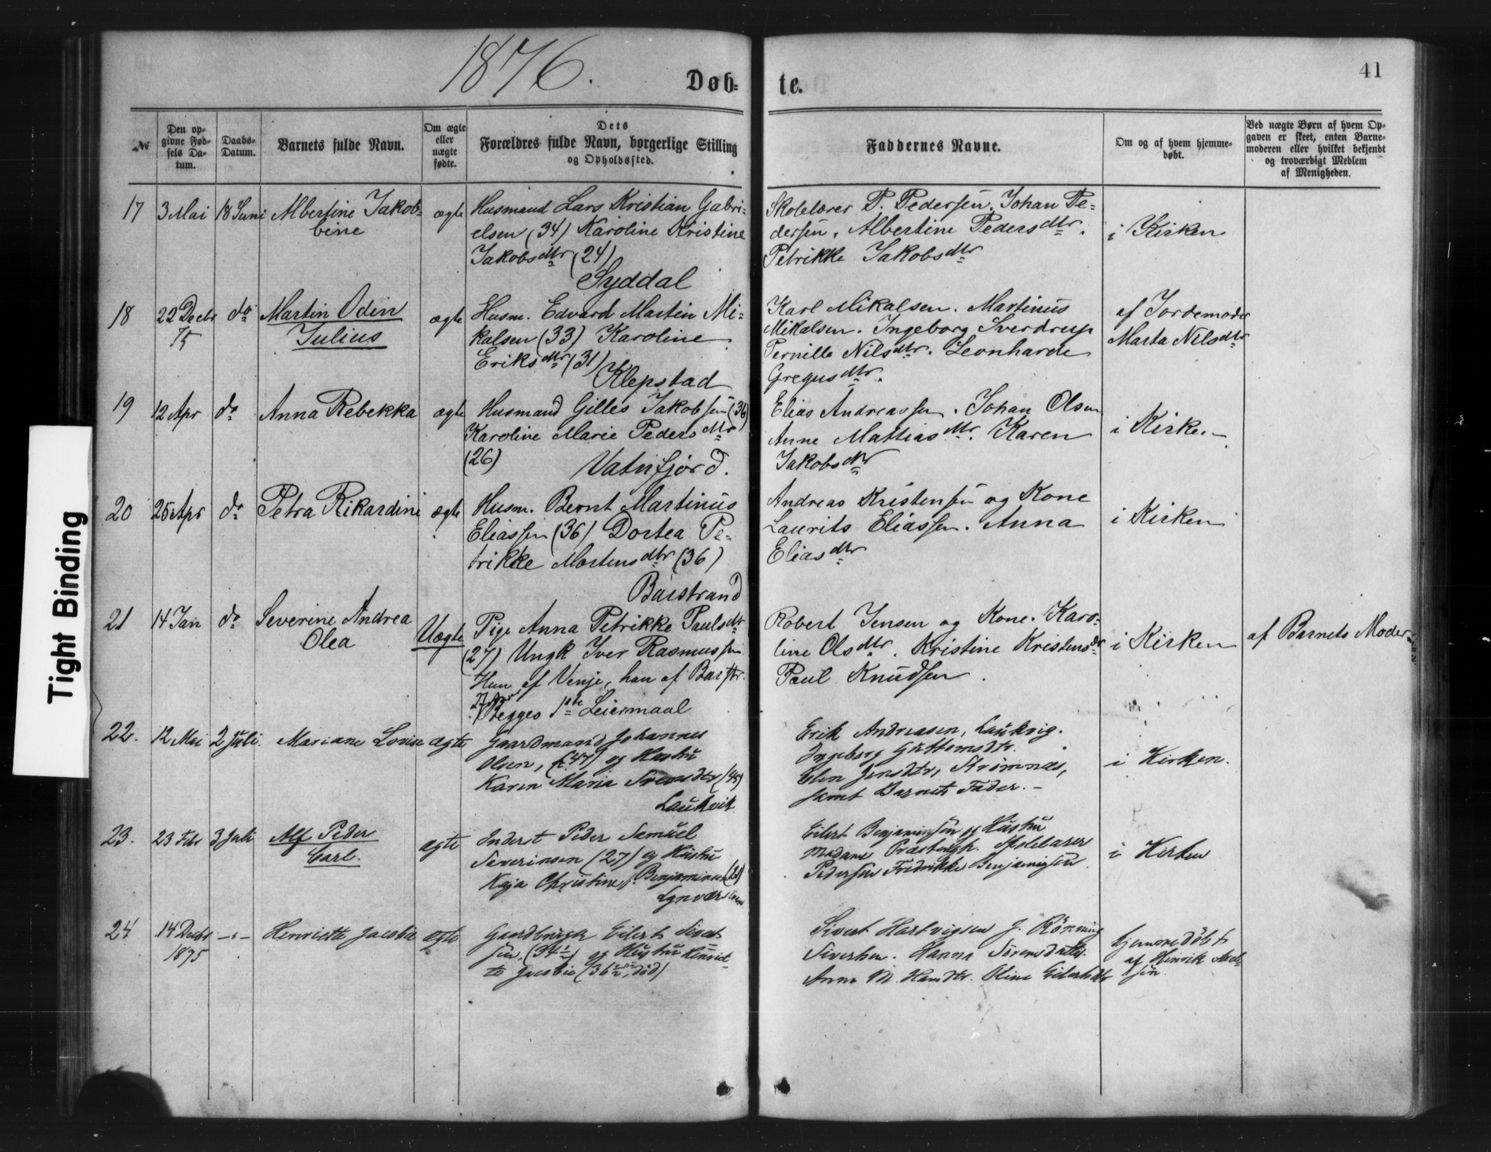 1876.
Døb-
te.
41
№
Den op-
givne Fød-
sels Da-
tum.
Daabs-
Datum.
Barnets fulde Navn.
Om ægte
eller
uægte
fødte.
Dets
Forældres fulde Navn, borgerlige Stilling
og Opholdssted.
Faddernes Navne.
Om og af hvem hjemme-
døbt.
Ved uægte Børn af hvem Op-
gaven er skeet, enten Barne-
moderen eller hvilket bekjendt
og troværdigt Medlem
af Menigheden.
17 3 Mai 18 Juni Albertine Jakob-
bine
ægte
Husmand Lars Kristian Gabri-
elsen (34) Karoline Kristine
Jakobsdtr (24)
Syddal
Skolelærer P. Pedersen. Johan Pe-
dersen. Albertine Pedersdtr.
Petrikke Jakobsdtr
i Kirken
18 22 Decbr
75
do Martin Odin
Julius
ægte
Husm. Edvard Martin Mi-
kalsen (33) Karoline
Eriksdtr (31)
Klepstad
Karl Mikalsen. Martinus
Mikalsen. Ingeborg Sverdrup
Pernille Nilsdtr. Leonharde
Gregusdtr.
af Jordemoder
Marta Nilsdtr
19 12 Apr do Anna Rebekka ægte
Husmand Gilles Jakobsen (36)
Karoline Marie Pedersdtr
(26)
Vatnfjord.
Elias Andreassen. Johan Olsen
Anne Mattiasdtr. Karen
Jakobsdtr
i Kirken
20 25 Apr do Petra Rikardine ægte
Husm. Bernt Martinus
Eliassen (36) Dortea Pe-
trikke Mortensdtr (36)
Barstrand
Andreas Kristensen og Kone
Laurits Eliassen. Anna
Eliasdtr
i Kirken
21 14 Jan do Severine Andrea
Olea
Uægte
Pige Anna Petrikke Paulsdtr
(27) Ungk Iver Rasmussen
Hun af Venje, han af Barstr.
Begges 1ste Leiermaal
Robert Jensen og Kone. Karo-
line Olsdtr. Kristine Kristensdtr
Paul Knudsen.
i Kirken
af Barnets Moder
22. 12 Mai 2 Juli Mariane Lovise ægte
Gaardmand Johannes
Olsen, (47) og Hustru
Karen Maria (45)
Laukvik
Erik Andreasen, Laukvig.
Ingeborg
Elen Jensdtr, Strømnæs,
samt Barnets Fader.
i Kirken.
23. 23 Febr 3 Juli Alf Peder
Carl.
ægte
Inderst Peder Samuel
Severinsen (27) og Hustru
Kaja Christine Benjaminsen
Eilert Benjaminsen og Hustru
Madame Skolelærer
Pedersen Fredrikke Benjaminsen
i Kirken
24 14 Decbr
1875
Henriette Jacobia ægte
Gaardbruger Eilert Sivert-
sen, (34 ½) og Hustru Henriet-
te Jacobia (36 ½, død)
Sivert Hartvigsen J. Rønning
Sivertsen. Hanna Sørensdatter.
Anna M. Oline Eilertsdtr
hjemmedøbt
af Henrik
sen
Tight Binding